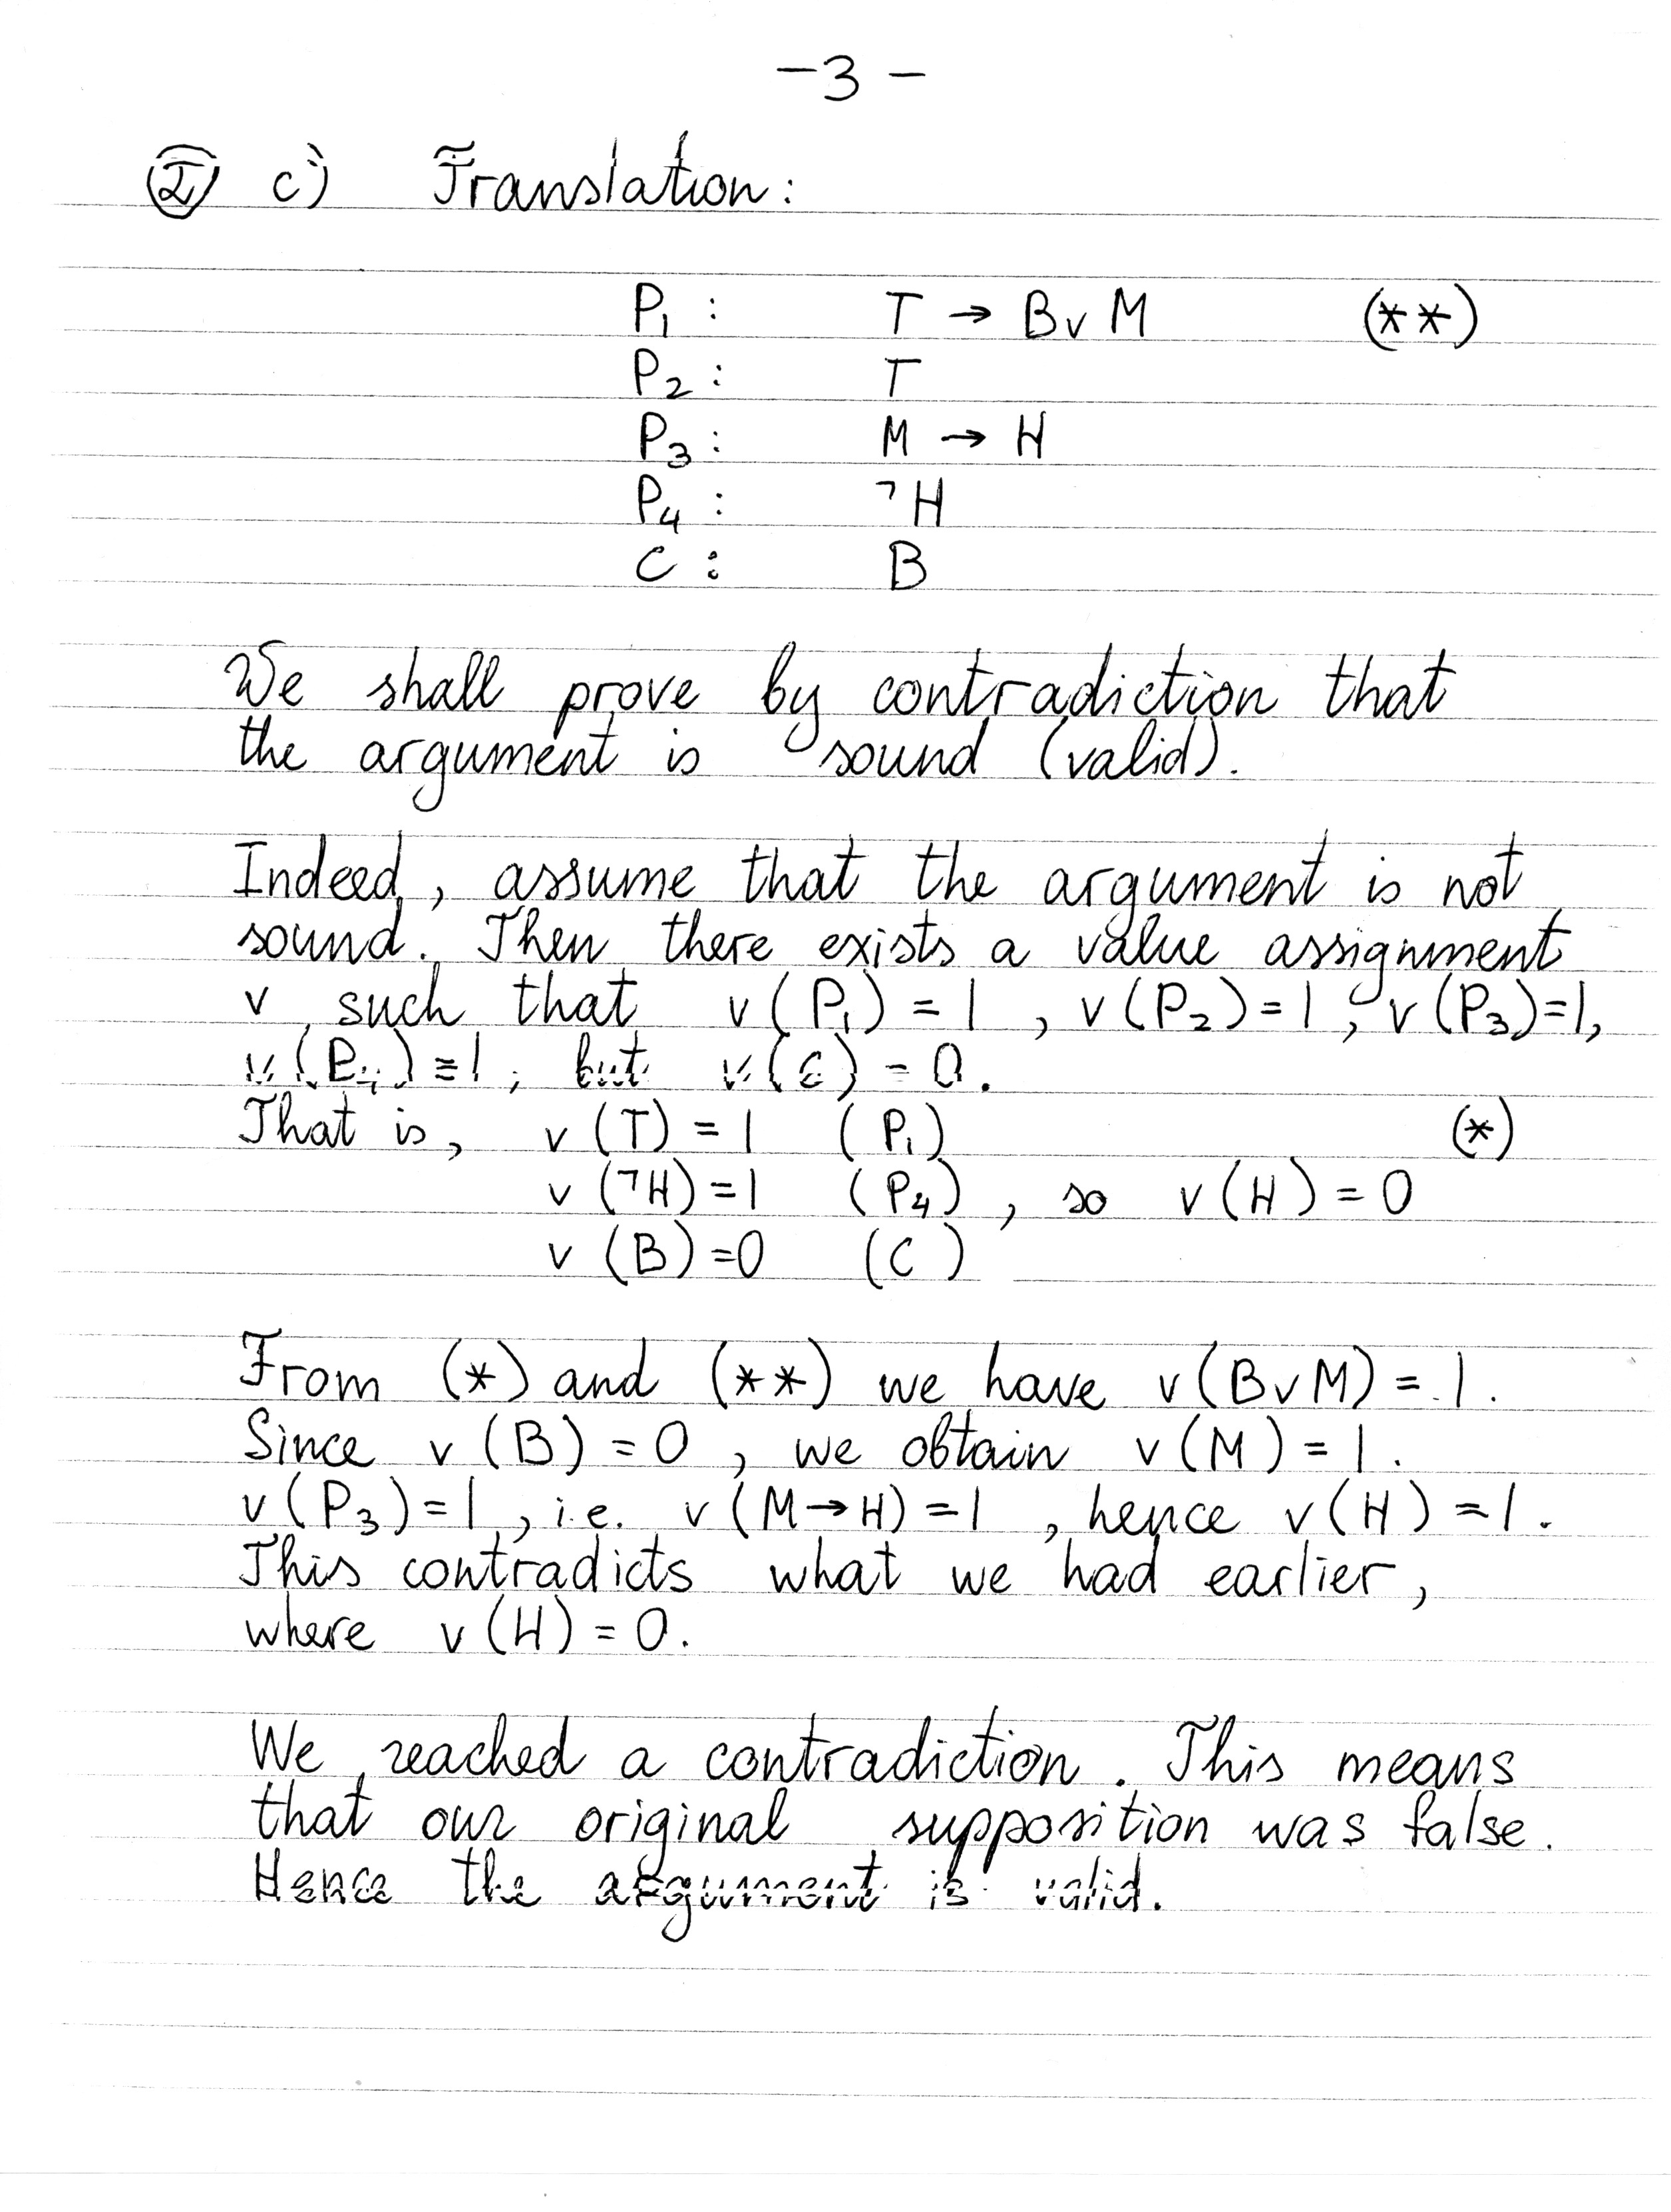 -3-
I c) Translation:
P₁ : T → B∨M (**)
P₂ : T
P₃ : M → H
P₄ : ¬H
C : B
We shall prove by contradiction that
the argument is sound (valid).
Indeed, assume that the argument is not
sound. Then there exists a value assignment
v such that v(P₁) = 1, v(P₂)=1, v(P₃)=1,
v(P₄)=1, but v(C) = 0.
That is, v(T) = 1 (P₁) (*)
v(¬H)=1 (P₄), so v(H) = 0
v(B)=0 (C)
From (*) and (**) we have v(B∨M) = 1.
Since v(B) = 0, we obtain v(M) = 1.
v(P₃)=1, i.e. v(M→H) = 1, hence v(H) = 1.
This contradicts what we had earlier,
where v(H) = 0.
We reached a contradiction. This means
that our original supposition was false.
Hence the argument is valid.